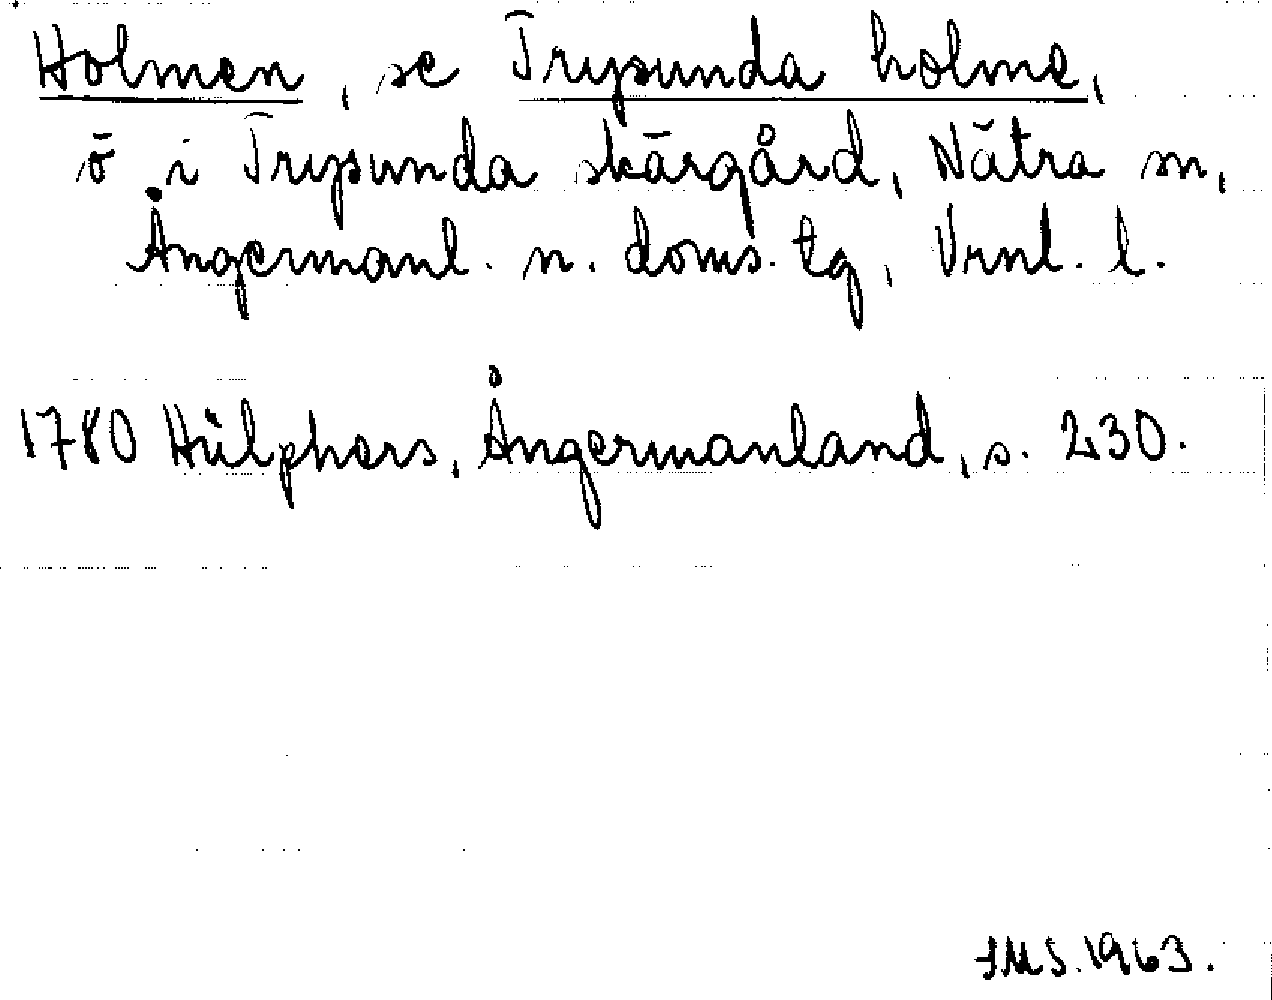 Holmen, se Trysunda holme,
ö i Trysunda skärgård, Nätra sn,
Ångermanl. n. doms. tg, Vrnl. l.
1780 Hülphers, Ångermanland, s. 230.
IMS. 1963.